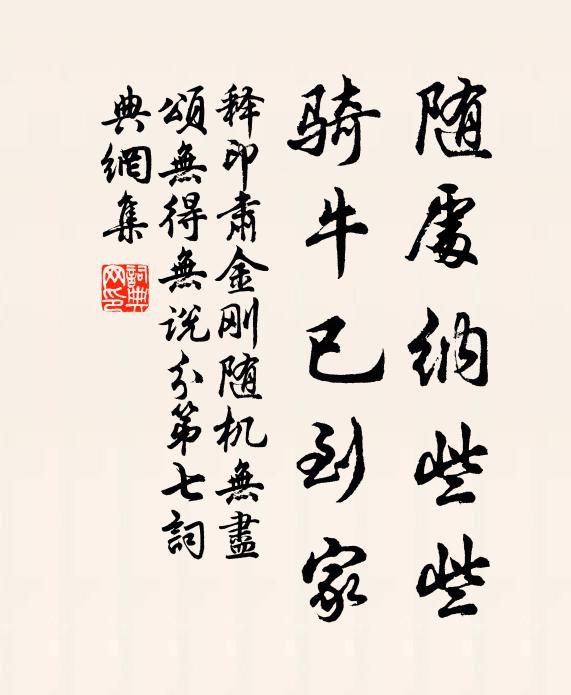 随處纳些些
騎牛已到家
释印肃金刚随机無盡
頌無得無说分第七詞
典網集
詞典网印